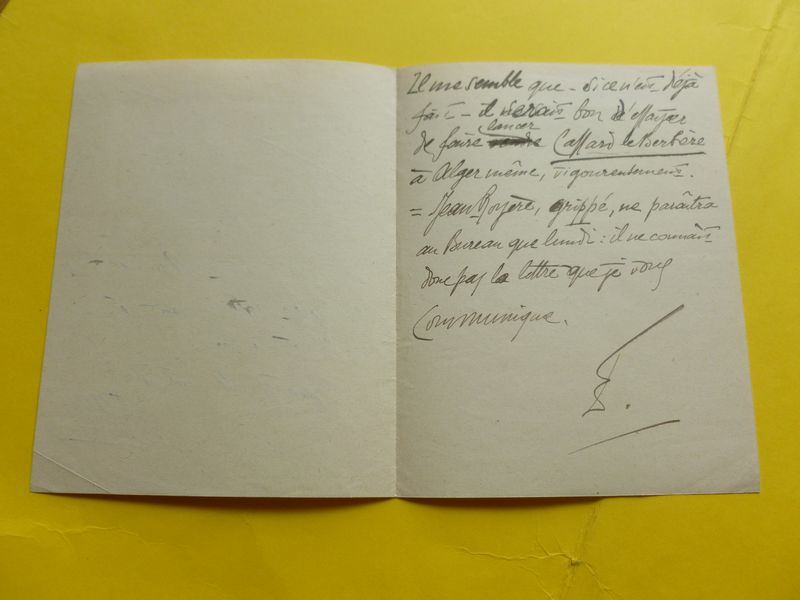 Il me semble que - si ce n'est déjà
fait - il serait bon d'essayer
de faire lancer Cassard le Berbère
à Alger même, vigoureusement.
= Jean Royère, grippé, ne paraîtra
au Bureau que lundi : il ne connait
donc pas la lettre que je vous
communique.